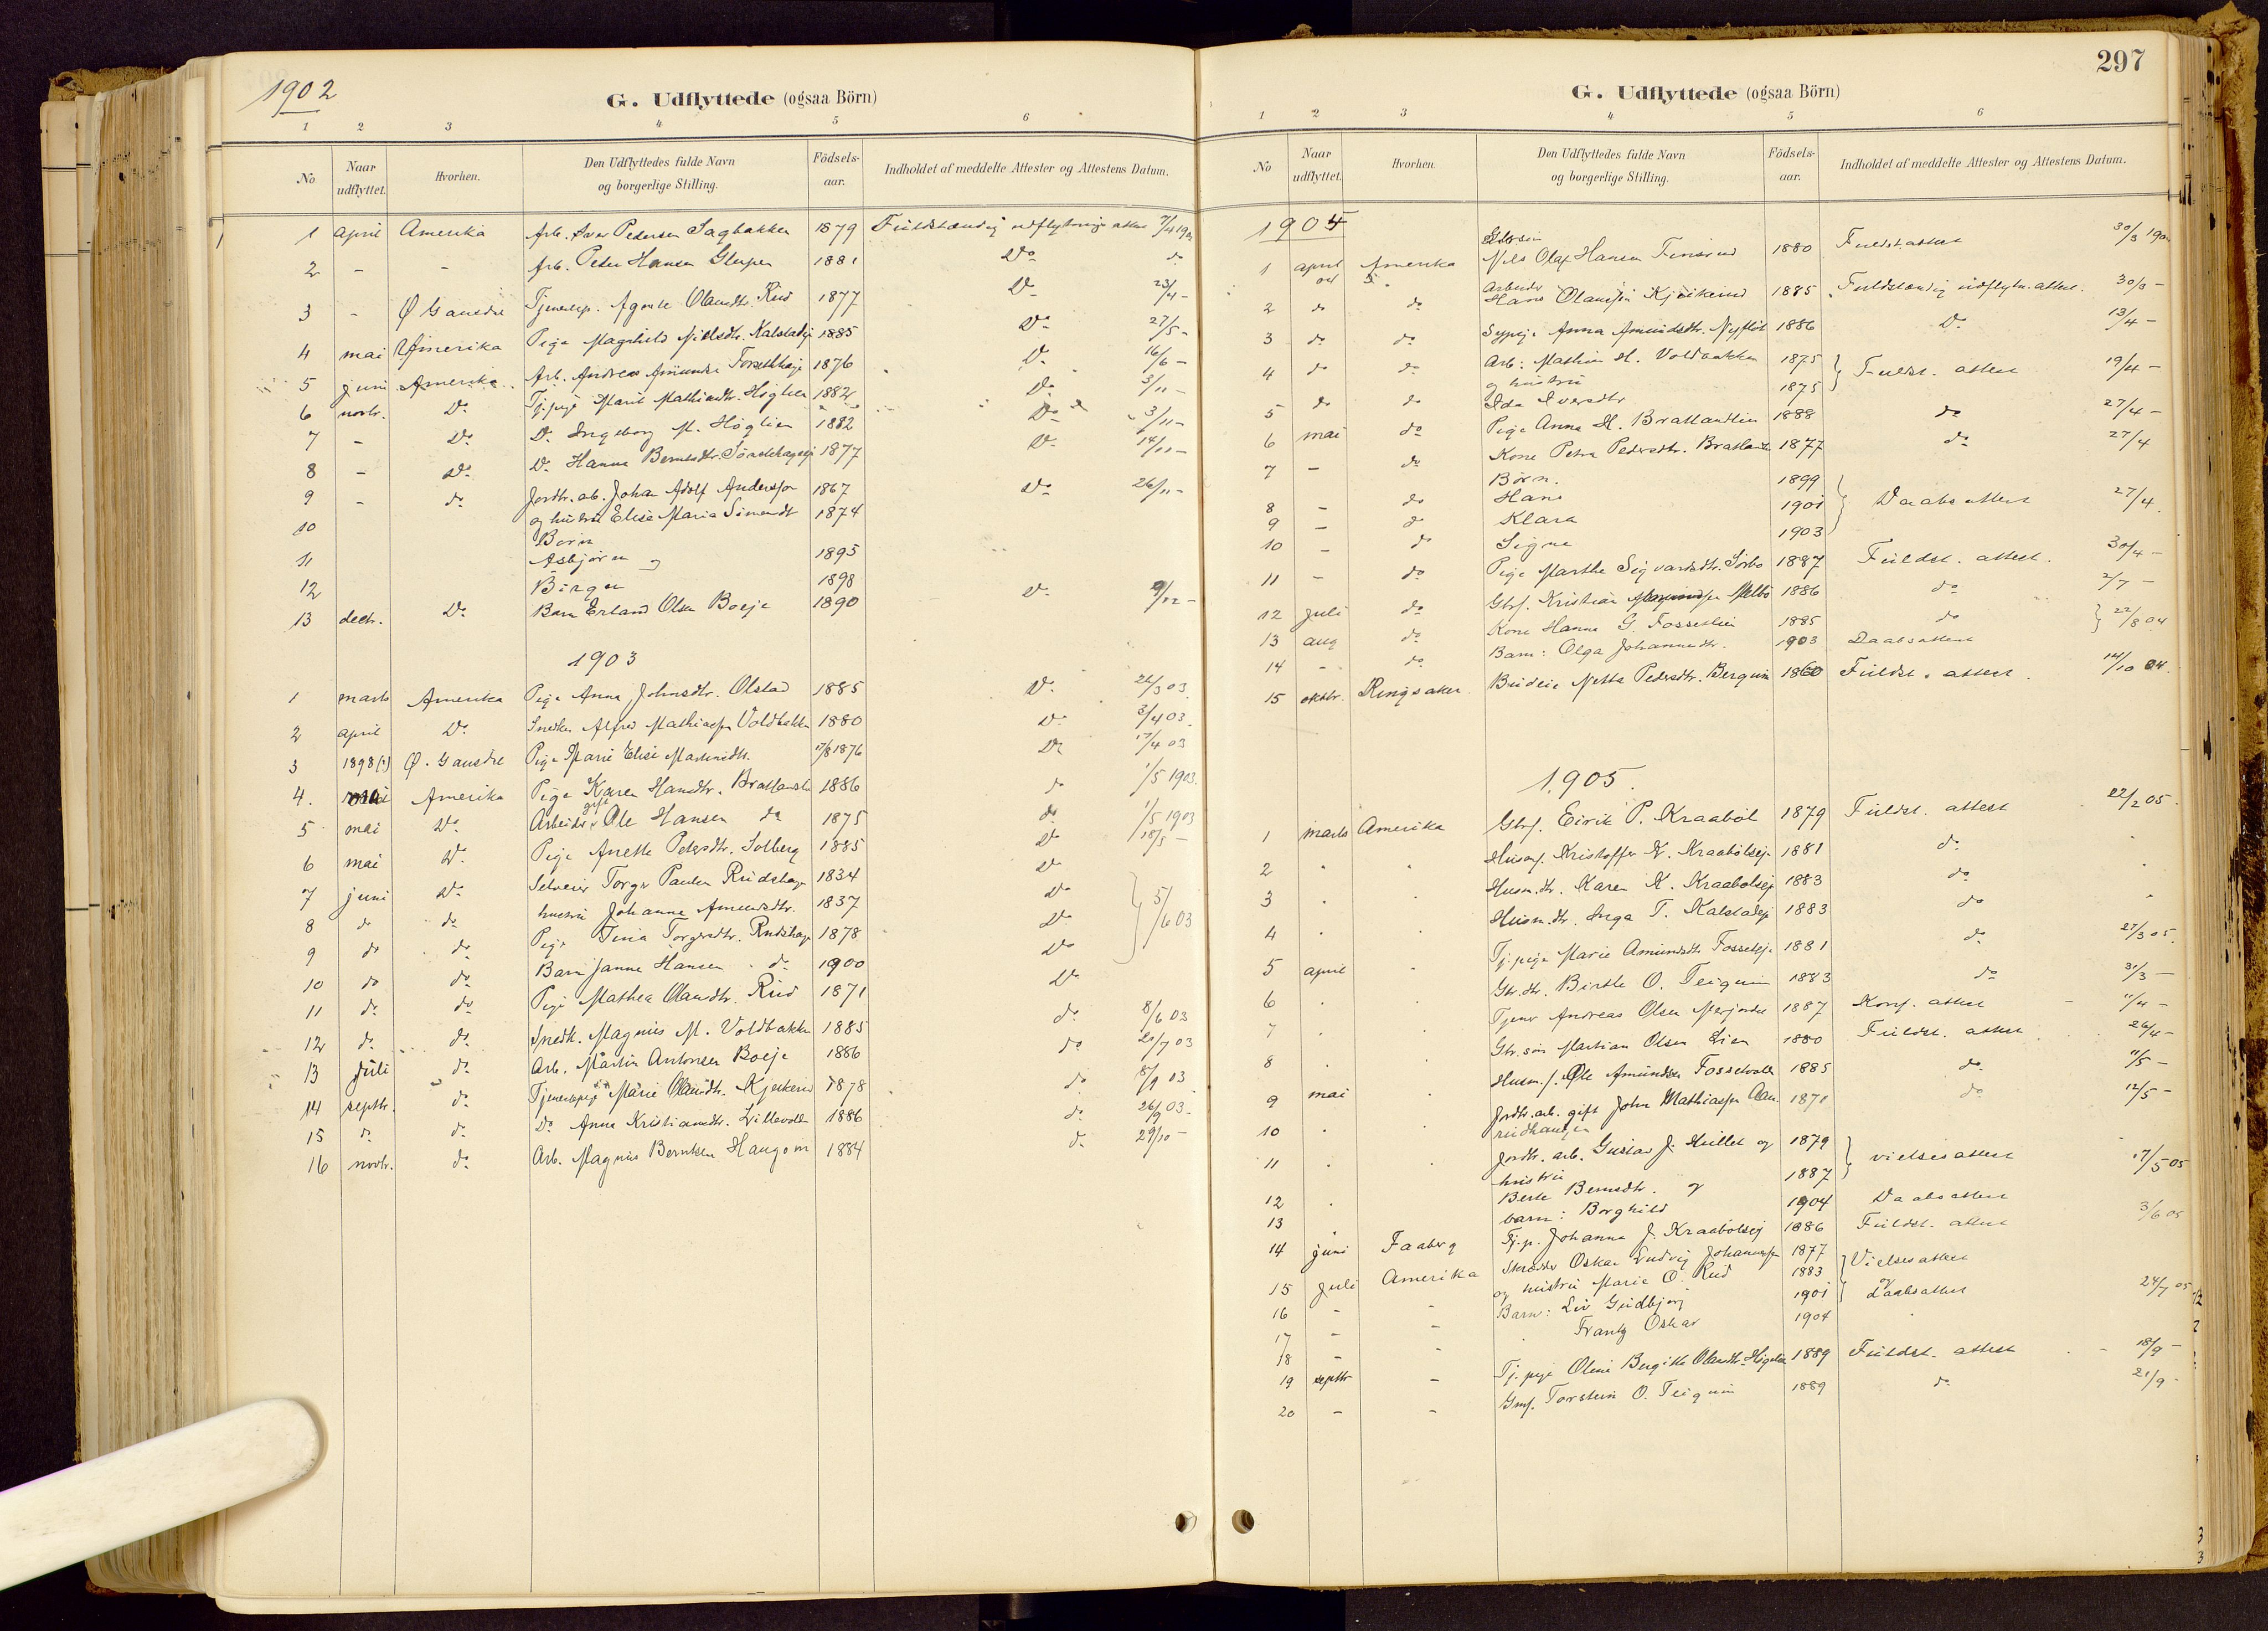 1902
G. Udflyttede (ogsaa Börn)
1 2 3 4 5 6
No Naar udflyttet. Hvorhen. Den Udflyttedes fulde Navn og borgerlige Stilling. Födsels-aar. Indholdet af meddelte Attester og Attestens Datum.
1 april Amerika Arb. Iver Pedersen Sagbakken 1879 Fuldstændig udflytnings attest 7/4 190
2 - - Arb. Peder Hansen 1881 Do do
3 - Ø Gausdal Agnete Olausdtr. Rud 1877 Do 23/4 -
4 mai Amerika Pige Magnhild Nielsdtr. Kalstadej 1885 Do 27/5 -
5 juni Amerika Arb. Andreas 1876 Do 16/6 -
6 novbr. Do Tj.pige Marit Mathiasdtr. Høglien 1882 Do 3/11 -
7 - Do Do Ingeborg M. Høglien 1882 Do 3/11 -
8 - Do Do Hanna Berntsdtr. 1877 Do 14/11 -
9 - do Jordbr. arb. Johan Adolf Anderssen 1867 Do 26/11 -
10 og hustru Elise Maria Simensdt 1874
Børn
11 Asbjørn og 1895
12 Birger 1898
13 decbr. Do Barn Erland Olsen Boeje 1890 Do 9/12 -
1903
1 marts Amerika Pige Anna Johnsdtr. Olstad 1885 Do 26/3 03
2 april Do Snedker Alfred Mathiassen Voldbakken 1880 Do 3/4 03
3 1898(?) Ø. Gausdal Pige Marie Elise 17/8 1876 Do 17/4 03
4. mai Amerika Pige Karen Hansdtr. 1886 do 1/5 1903
5 mai Do Arbeider gift Ole Hansen do 1875 do 1/5 1903
6 mai Do Pige Anette Pedersdtr. Solberg 1885 Do 18/5 -
7 juni Do Selveier Torger Paulsen Rudshage 1834 Do
8 do do hustru Johanne Amundsdtr. 1837 Do 5/6 03
9 do do Pige Tina Torgersdtr. Rudshage 1878 Do
10 do do Barn Janna Hansen do 1900 Do
11 do do Pige Mathea Olausdtr. Rud 1871 Do
12 do do Snedk. Magnus M. Voldbakken 1885 do 8/6 03
13 juli do Arb. Martin Antonsen Boeje 1886 do 21/7 03
14 septbr. do Tjenestepige Marie Olausdtr. Kjeikerud 1878 do 8/9 03
15 do do Do Anna Kristiansdtr. Lillevolden 1886 do 26/9 03
16 novbr. do Arb. Magnus Berntsen Haugom 1884 do 29/10 -
297
G. Udflyttede (ogsaa Börn)
1 2 3 4 5 6
No Naar udflyttet. Hvorhen. Den Udflyttedes fulde Navn og borgerlige Stilling. Födsels-aar. Indholdet af meddelte Attester og Attestens Datum.
1904
1 april 04 Amerika Nils Olaf Hansen Finsrud 1880 Fuldst. attest 30/3 190
2 do do Arbeider Hans Olaussen Kjeikerud 1885 Fuldstændig udflytn. attest. 30/3 -
3 do do Sypige Anna Amundsdtr. Nyflöt 1886 Do 13/4 -
4 do do Arb: Mathias M. Voldbakken 1875 Fuldst. attest 19/4 -
og hustru
5 do do Ida Iversdtr 1875
6 mai do Pige Anna H. Bratlandlien 1888 do 27/4 -
7 - do Kone Petra Pedersdtr. 1877 do 27/4
Børn.
8 - do Hans 1899 Daabsattest 27/4
9 - do Klara 1901
10 - do Signe 1903
11 - do Pige Marthe Sigvartsdtr. Sörbo 1887 Fuldst. attest. 30/4 -
12 juli do Gbrs. Kristian Melbö 1886 do 2/7 -
13 aug do Kone Hanna G. Fosselien 1885 do 22/8 04
14 - do Barn: Olga Johannesdtr. 1903 Daabsattest
15 oktbr. Ringsaker Budeie Mette Pedersdtr. Bergum 1860 Fuldst. attest. 14/10 04
1905.
1 marts Amerika Gbrs. Eirik P. Kraaböl 1879 Fuldst. attest 22/2 05.
2 . . Husms. Kristoffer K. Kraabölsej. 1881 do "
3 . . Husm.dtr. Karen K. Kraabölsej 1883 do "
4 . . Husm.dtr. Inga T. Kalstadej 1883 do
5 april . Tj.pige Marie Amundsdtr Fosselej. 1881 do 27/3 05.
6 . . Gbr.dtr. Birthe O. Teigum 1883 do 31/3 -
7 . . Tjener Andreas Olsen 1887 Konf. attest - 11/4 -
8 . . Gbr.søn Martian Olsen Lien 1880 Fuldst. attest 26/4 -
9 mai . Husm.s. Ole Amundsen Fosselvolden 1885 do 11/5 -
10 . . Jordbr. arb. gift John Mathiassen 1871 do 12/5 -
11 . . Jordbr. arb. Gustav J. og 1879 vielsesattest 17/5 05
hustru
12 . Berte Berntsdtr. og 1887
13 . barn: Borghild 1904 Daabsattest
14 juni Faaberg Tj.p. Johanna J. Kraabölsej 1886 Fuldst. attest 3/6 05
15 juli Amerika Skrædder Oskar Ludvig Johannessen 1877 Vielsesattest
16 - - og hustru Marie O. Rud 1883 og
17 - - Barn: Liv Gudbjørg 1901 daabsattest 24/7 05
18 - - Frantz Oskar 1904
19 septbr - Tj.pige Oline Birgitte Olausdtr. Høglien 1889 Fuldst. attest - 18/9 -
20 - - Gms. Torstein O. Teigum 1889 do 21/9 -